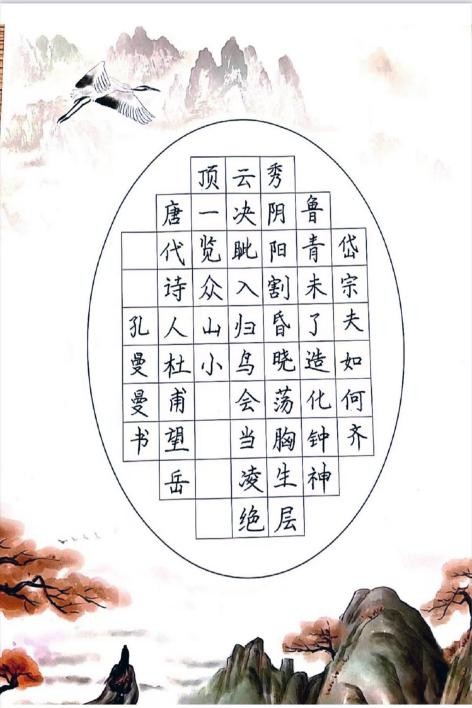 岱宗夫如何齐
鲁青未了造化钟神
秀阴阳割昏晓荡胸生层
云决眦入归鸟会当凌绝
顶一览众山小
唐代诗人杜甫望岳
孔曼曼书